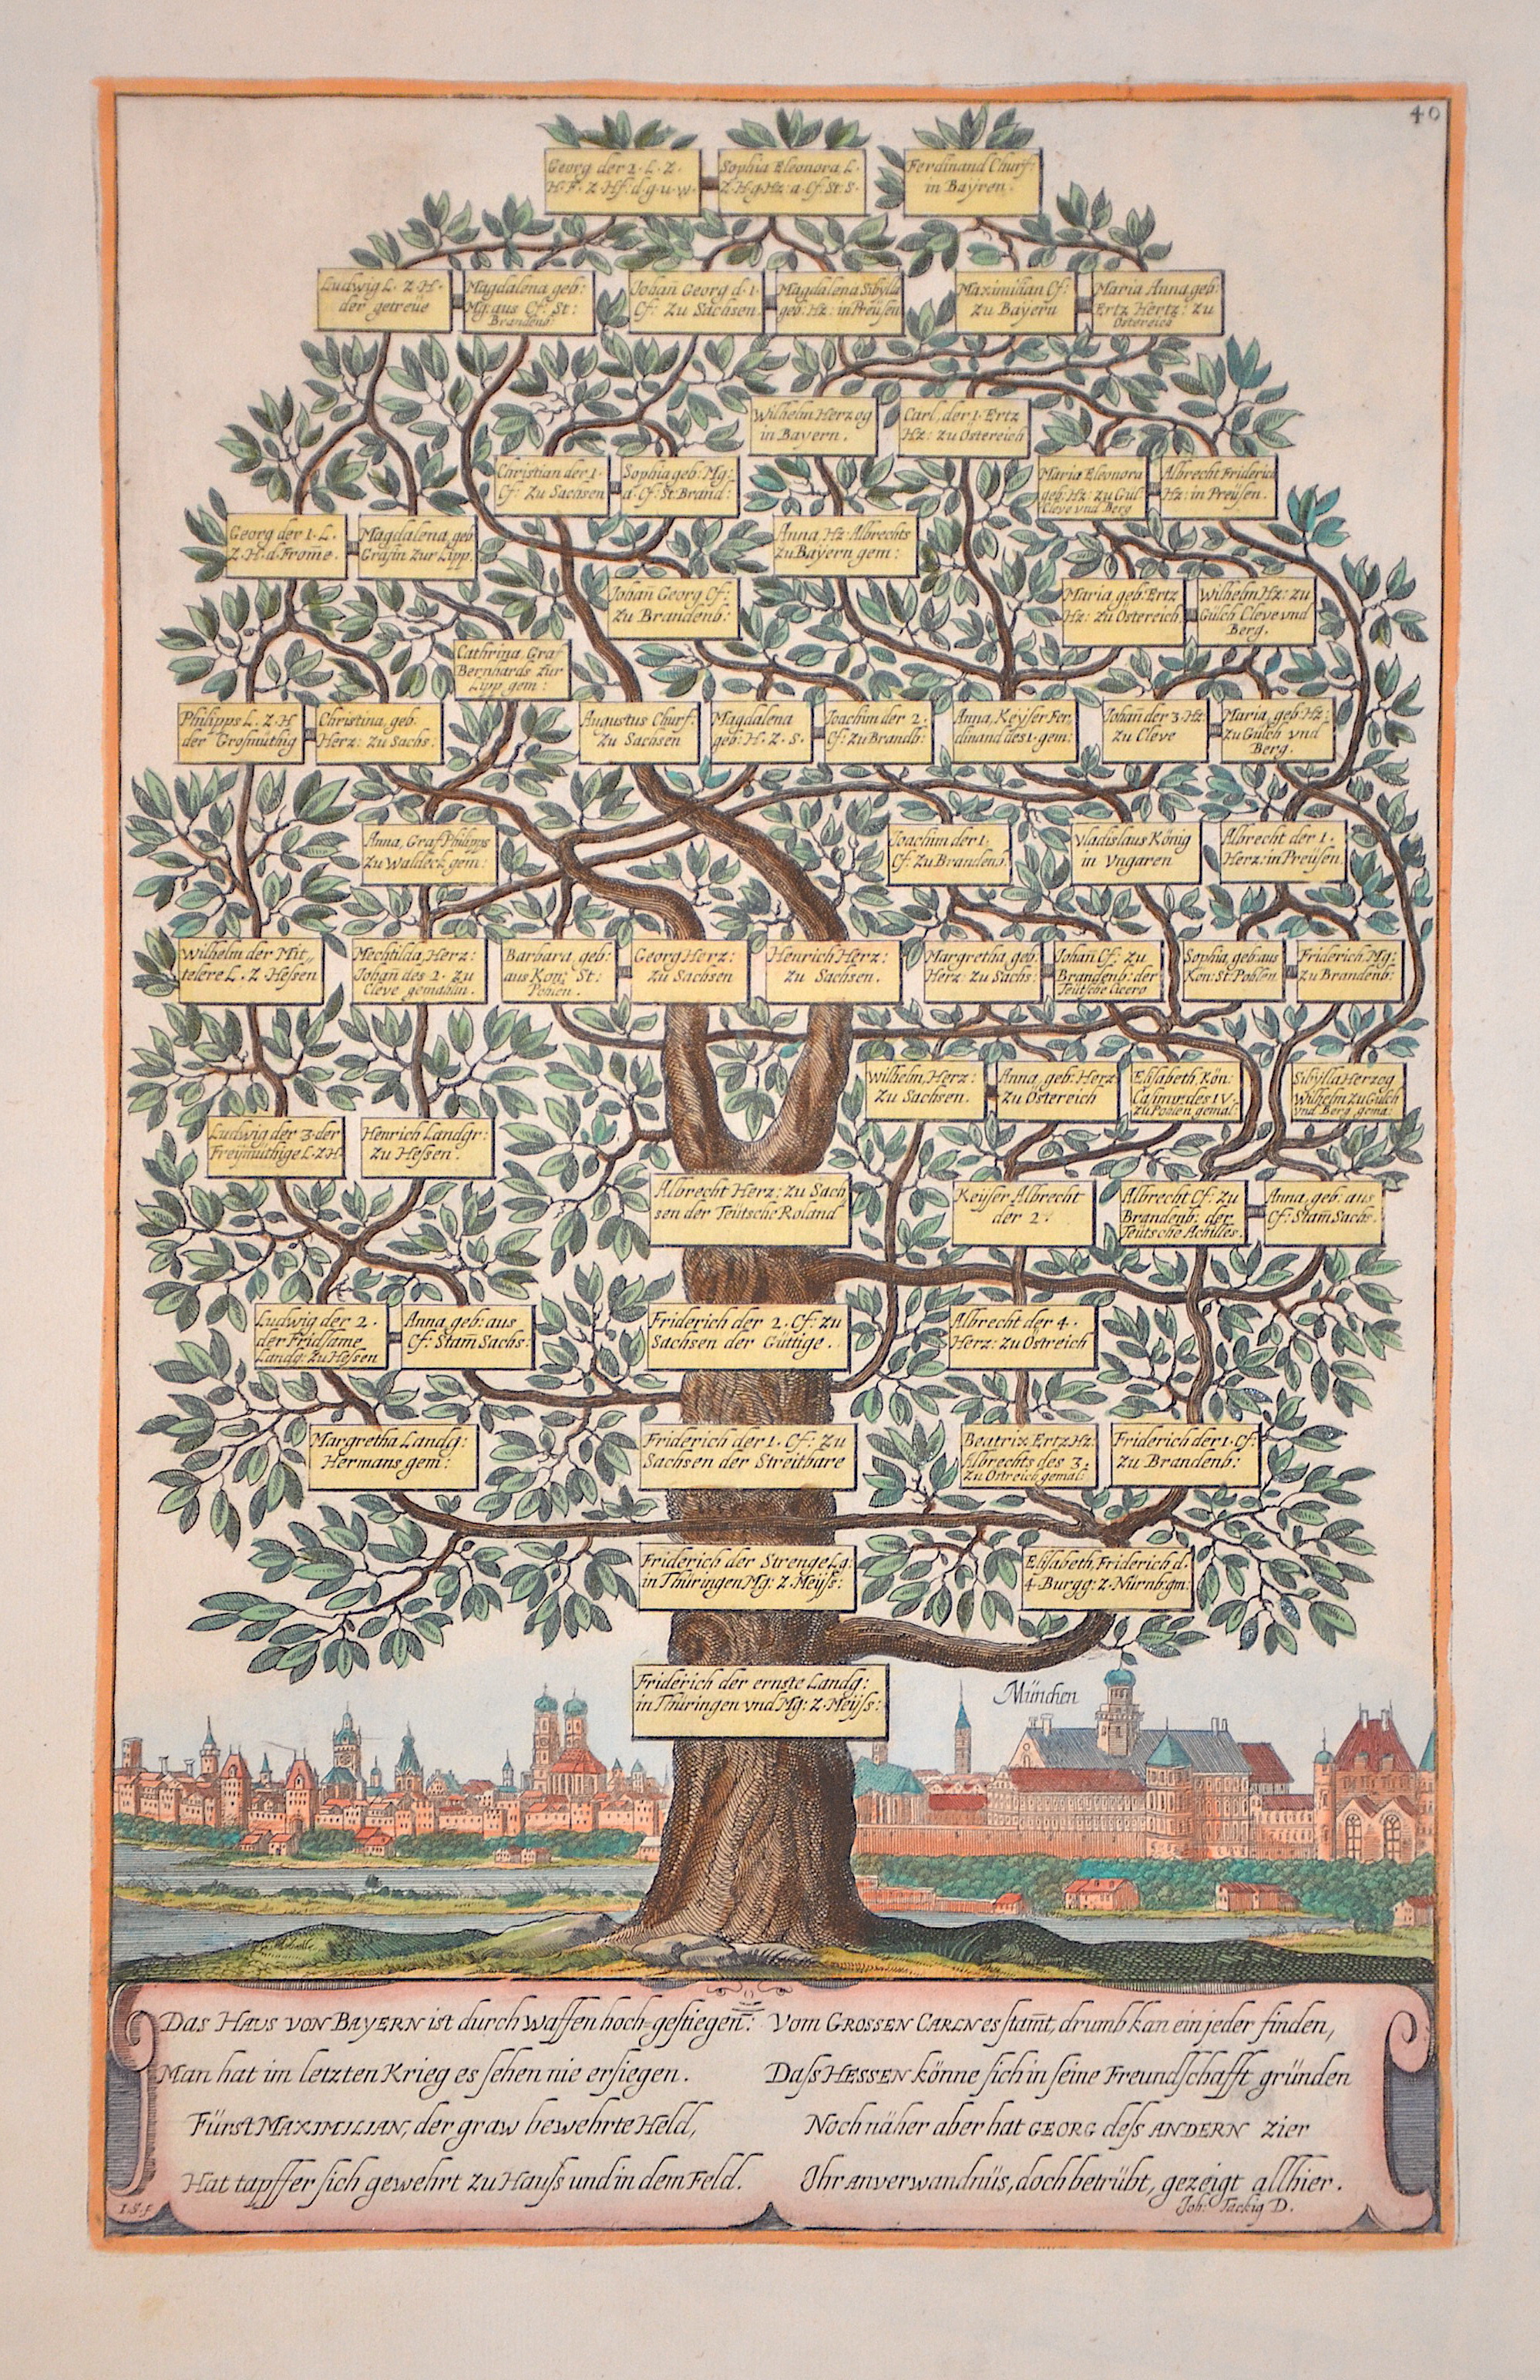 40
Georg der 2. L. Z.
H. F. Z. Hf. d. g. u. w.
Sophia Eleonora L.
Z. H. g. Hz: a. Cf. St: S.
Ferdinand Churf:
in Bayren.
Ludwig L. Z. H.
der getreüe
Magdalena geb:
Mg: aus Cf: St:
Brandenb:
Johañ Georg d. 1.
Cf: Zu Sachsen.
Magdalena Sibylla
geb: Hz: in Preüsen
Maximilian Cf:
zu Bayern
Maria Anna geb:
Ertz Hertz: zu
Östereich
Wilhelm Herzog
in Bayern.
Carl, der 1. Ertz
Hz: zu Östereich
Christian der 1.
Cf: Zu Sachsen
Sophia geb: Mg:
a. Cf: St: Brand:
Maria Eleonora
geb: Hz: zu Gul:
Cleve vnd Berg
Albrecht Friderich
Hz: in Preüsen.
Georg der 1. L.
Z. H. d. From̃e.
Magdalena geb
Gräfin Zur Lipp.
Anna, Hz: Albrechts
zu Bayern gem:
Johañ Georg Cf:
zu Brandenb:
Maria geb: Ertz
Hz: zu Östereich
Wilhelm Hz: zu
Gülch Cleve vnd
Berg.
Cathrina, Graf
Bernhards zur
Lipp gem:
Philipps L. Z. H
der Großmüthig
Christina, geb:
Herz: zu Sachs:
Augustus Churf:
zu Sachsen
Magdalena
geb: H. Z. S.
Joachim der 2.
Cf: zu Brandb:
Anna, Keyser Fer,
dinand des 1. gem:
Johañ der 3. Hz:
zu Cleve
Maria, geb: Hz:
zu Gülch vnd
Berg.
Anna, Graf Philipps
zu Waldeck gem:
Joachim der 1.
Cf: zu Brandenb.
Vladislaus König
in Vngaren
Albrecht der 1.
Herz: in Preüsen.
Wilhelm der Mit,,
telere L. Z Hessen
Mechtilda, Herz:
Johañ des 2. zu
Cleve gemahlin.
Barbara, geb:
aus Kön: St:
Pohlen.
Georg Herz:
zu Sachsen
Henrich Herz:
zu Sachsen.
Margretha, geb:
Herz: zu Sachs:
Johañ Cf: zu
Brandenb: der
Teütsche Cicero
Sophia, geb: aus
Kön: St: Pohlen
Friderich, Mg:
zu Brandenb:
Wilhelm, Herz:
zu Sachsen.
Anna, geb: Herz
zu Östereich
Elisabeth, Kön:
Casimir des IV.
zu Pohlen gemal:
Sibylla Herzog
Wilhelm zu Gülch
vnd Berg, gema:
Ludwig der 3. der
Freymüthige L. Z. H.
Henrich Landgr:
zu Hessen.
Albrecht Herz: zu Sach
sen der Teütsche Roland
Keyser Albrecht
der 2.
Albrecht Cf: zu
Brandenb: der
Teütsche Achilles.
Anna, geb: aus
Cf: Stam̃ Sachs.
Ludwig der 2.
der Fridsame
Landg: zu Hessen
Anna, geb: aus
Cf: Stam̃ Sachs:
Friderich der 2. Cf: zu
Sachsen der Güttige.
Albrecht der 4.
Herz: zu Östreich
Margretha Landg:
Hermans gem:
Friderich der 1. Cf: zu
Sachsen der Streitbare
Beatrix Ertz Hz:
Albrechts des 3.
zu Östreich gemal:
Friderich der 1. Cf:
zu Brandenb:
Friderich der Strenge Lg:
in Thüringen Mg: Z. Meyss:
Elisabeth, Friderich d.
4. Burgg: Z. Nürnb: gm:
Friderich der ernste Landg:
in Thüringen vnd Mg: Z. Meyss:
München
Das Haus von Bayern ist durch Waffen hoch-gestiegen:
Man hat im letzten Krieg es sehen nie ersiegen.
Fürst MAXIMILIAN, der graw bewehrte Held,
Hat tapffer sich gewehrt zu Hauss und in dem Feld.
Vom Grossen Carln es stam̃t, drumb kan ein jeder finden,
Dass HESSEN könne sich in seine Freundschafft gründen
Noch näher aber hat GEORG dess ANDERN zier
Ihr anverwandnüs, doch betrübt, gezeigt allhier.
Joh: Tackig D.
I. S. f